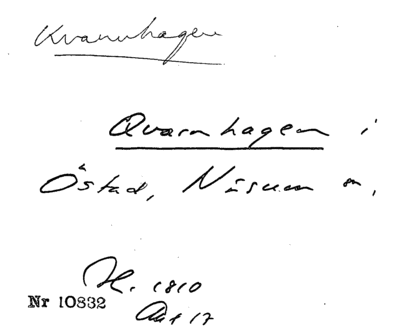 Kvarnhagen
Qvarnhagen i
Östad, Näsum sn.
H. 1810
Nr 10832
Akt 17